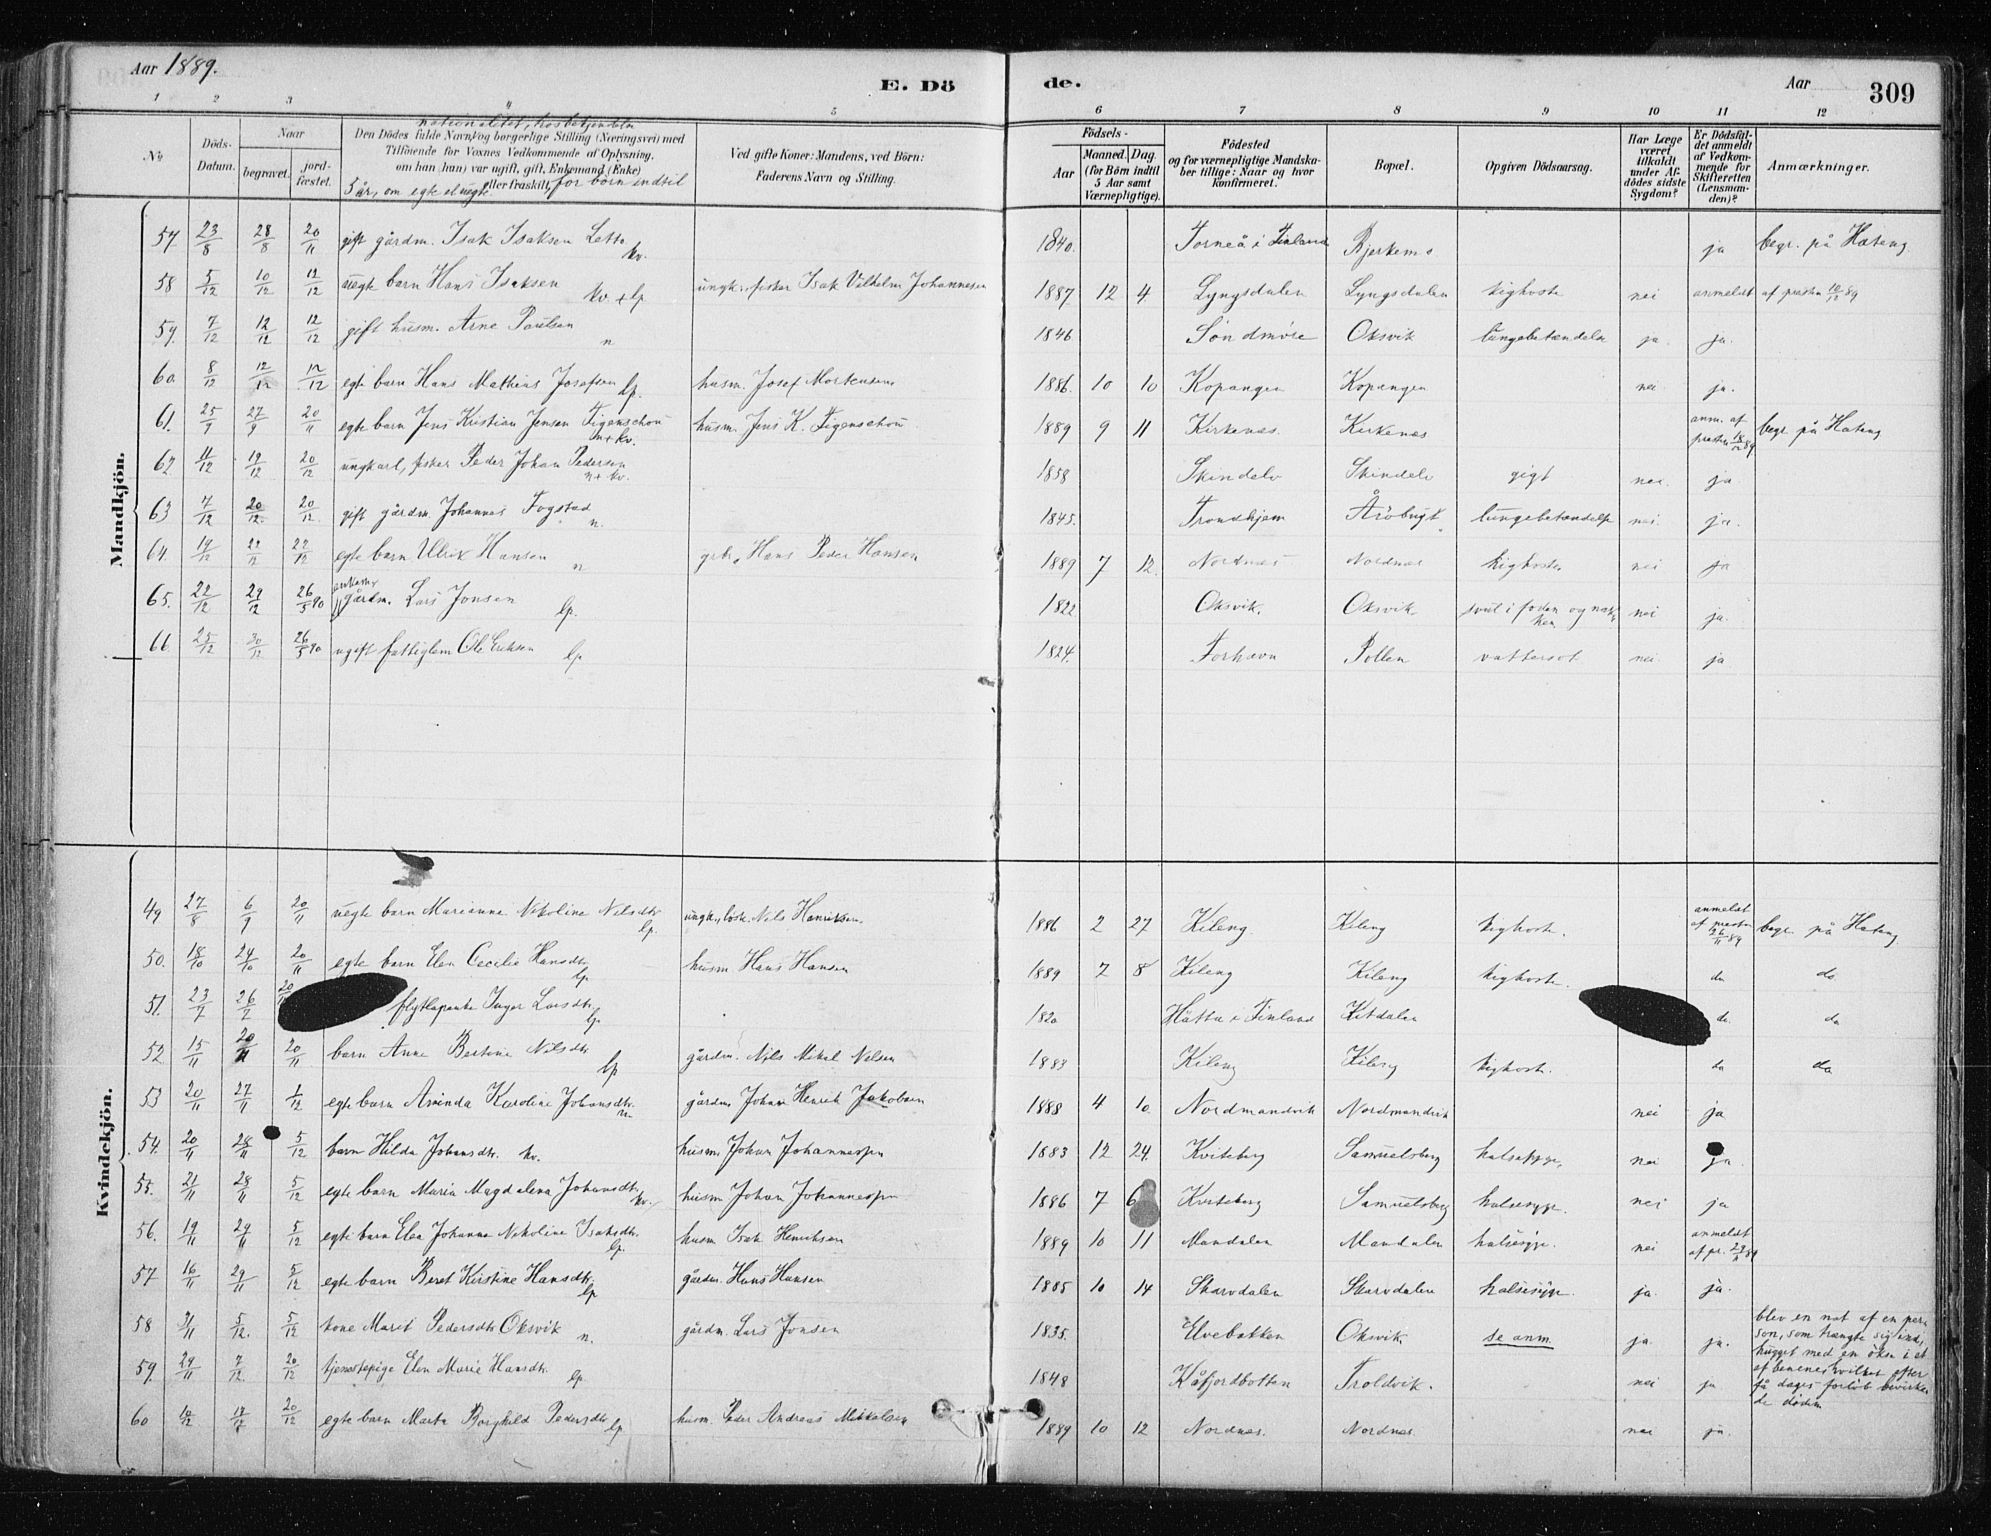 Aar 1889.
E. Dö
de.
Aar
309
1 2 3 4 5 6 7 8 9 10 11 12
No
Döds-Datum.
Naar
begravet.
jord-fæstet.
nationalitet, hos betjendelse
Den Dödes fulde Navn og borgerlige Stilling (Næringsvei) med
Tilföiende for Voxnes Vedkommende af Oplysning,
om han (hun) var ugift, gift, Enkemand (Enke)
eller fraskilt, for börn indtil
5 år, om egte el. uegte.
Ved gifte Koner: Mandens, ved Börn:
Faderens Navn og Stilling.
Födsels-
Aar
Maaned. Dag.
(for Börn indtil
5 Aar samt
Værnepligtige).
Födested
og for værnepligtige Mandska-
ber tillige: Naar og hvor
konfirmeret.
Bopæl.
Opgiven Dödsaarsag.
Har Læge
været
tilkaldt
under Af-
dödes sidste
Sygdom?
Er Dödsfal-
det anmeldt
af Vedkom-
mende for
Skifteretten
(Lensman-
den)?
Anmærkninger.
Mandkjön.
57 23/8 28/8 20/11 gift gårdm. Isak Isaksen Letto kv. 1840. Torneå i Finland Bjerkemo ja begr. på Hateng
58 5/12 10/12 12/12 uegte barn Hans Isaksen kv. + lp ungk., fisker Isak Vilhelm Johannesen 1887 12 4 Lyngsdalen Lyngsdalen kighoste nei anmeldt af præsten 12/12 89
59. 7/12 12/12 12/12 gift husm. Arne Paulsen n 1846 Söndmöre Oksvik lungebetændelse ja. ja.
60. 8/12 12/12 12/12 egte barn Hans Mathias Josefsen lp. husm. Josef Mortensen 1886. 10 10 Kopangen Kopangen nei ja.
61. 25/9 27/9 20/11 egte barn Jens Kristian Jensen Figenschou n + kv. husm. Jens K. Figenschou 1889 9 11 Kirkenes Kirkenes anm. af præsten 18/12 89 begr. på Hateng
62. 11/12 19/12 20/12 ungkarl, fisker Peder Johan Pedersen n + kv. 1858 Skindelv Skindelv gigt nei. ja
63 7/12 20/12. 20/12. gift gårdm. Johannes Fogstad n. 1845. Trondhjem Åröbugt lungebetændelse nei. ja.
64. 14/12 22/12 22/12 egte barn Ulrik Hansen n grbr. Hans Peder Hansen 1889 7 12. Nordnes Nordnes kighoste nei ja
65. 22/12 29/12 26/3 90 enkem. gårdm. Lars Jonsen lp. 1822 Oksvik. Oksvik svul i foden og nakken nei ja.
66. 25/12 30/12 26/3 90 ugift fattiglem Ole Eriksen lp 1824. Forhavn Pollen vattersot nei. ja
Kvindekjön.
49 27/8 6/9 20/11 uegte barn Marianne Nikoline Nilsdtr. lp. ungk., lösk. Nils Henriksen. 1886 2 27 Kileng. Kileng kighoste. anmeldt af præsten 26/11 89 begr. på Hateng
50. 18/10 24/10 20/11 egte barn Elen Cecilie Hansdtr. lp husm Hans Hansen 1889 7 8 Kileng Kileng kighoste. do do
51. 23/7 26/7 20/ flytlapenke Inger Larsdtr. lp. 1820 Hätta i Finland Kitdalen do. do
52. 15/11 20/11 20/11 barn Anne Bertine Nilsdtr. lp gårdm. Nils Mikal Nilsen 1883 Kileng Kileng kighoste. do do
53 20/11 27/11 1/12 egte barn Avinda Karoline Johansdtr. n gårdm. Johan Henrik Jakobsen 1888 4 10. Nordmandvik Nordmandvik nei ja
54. 20/11 28/11 5/12 barn Hilda Johansdtr. kv. husm. Johan Johannessen 1883 12 24. Kviteberg Samuelsberg halsesyge, nei ja.
55. 21/11 28/11 5/12 egte barn Maria Magdalena Johansdtr. kv. husm. Johan Johannessen 1886 7 6 Kviteberg Samuelsberg halsesyge. nei ja
56. 19/11 29/11 5/12 egte barn Elen Johanna Nikoline Isaksdtr. lp. husm Isak Henriksen 1889 10 11 Mandalen Mandalen halsesyge. nei anmeldt af pr. 29/11 89
57 16/11 29/11 5/12 egte barn Beret Kirstine Hansdtr. lp gårdm. Hans Hansen 1885 10 14 Skarvdalen Skarvdalen halsesyge. ja. ja.
58 3/11 5/12. 5/12 kone Maret Pedersdtr. Oksvik n. gårdm. Lars Jonsen 1835. Elvebakken Oksvik se anm. ja. ja. blev en nat af en per-
son, som trængte sig ind,
hugget med en öksa i et
af benene, hvilket efter
få dages forlöb bevirke-
de döden
59. 29/11 7/12. 20/12 tjenestepige Elen Marie Hansdtr. lp. 1848 Kåfjordbotten Troldvik. nei ja
60 10/12 17/12 20/12 egte barn Marta Borghild Pedersdtr. lp husm. Peder Andreas Mikkelsen 1889 10 12 Nordnes. Nordnes nei ja.